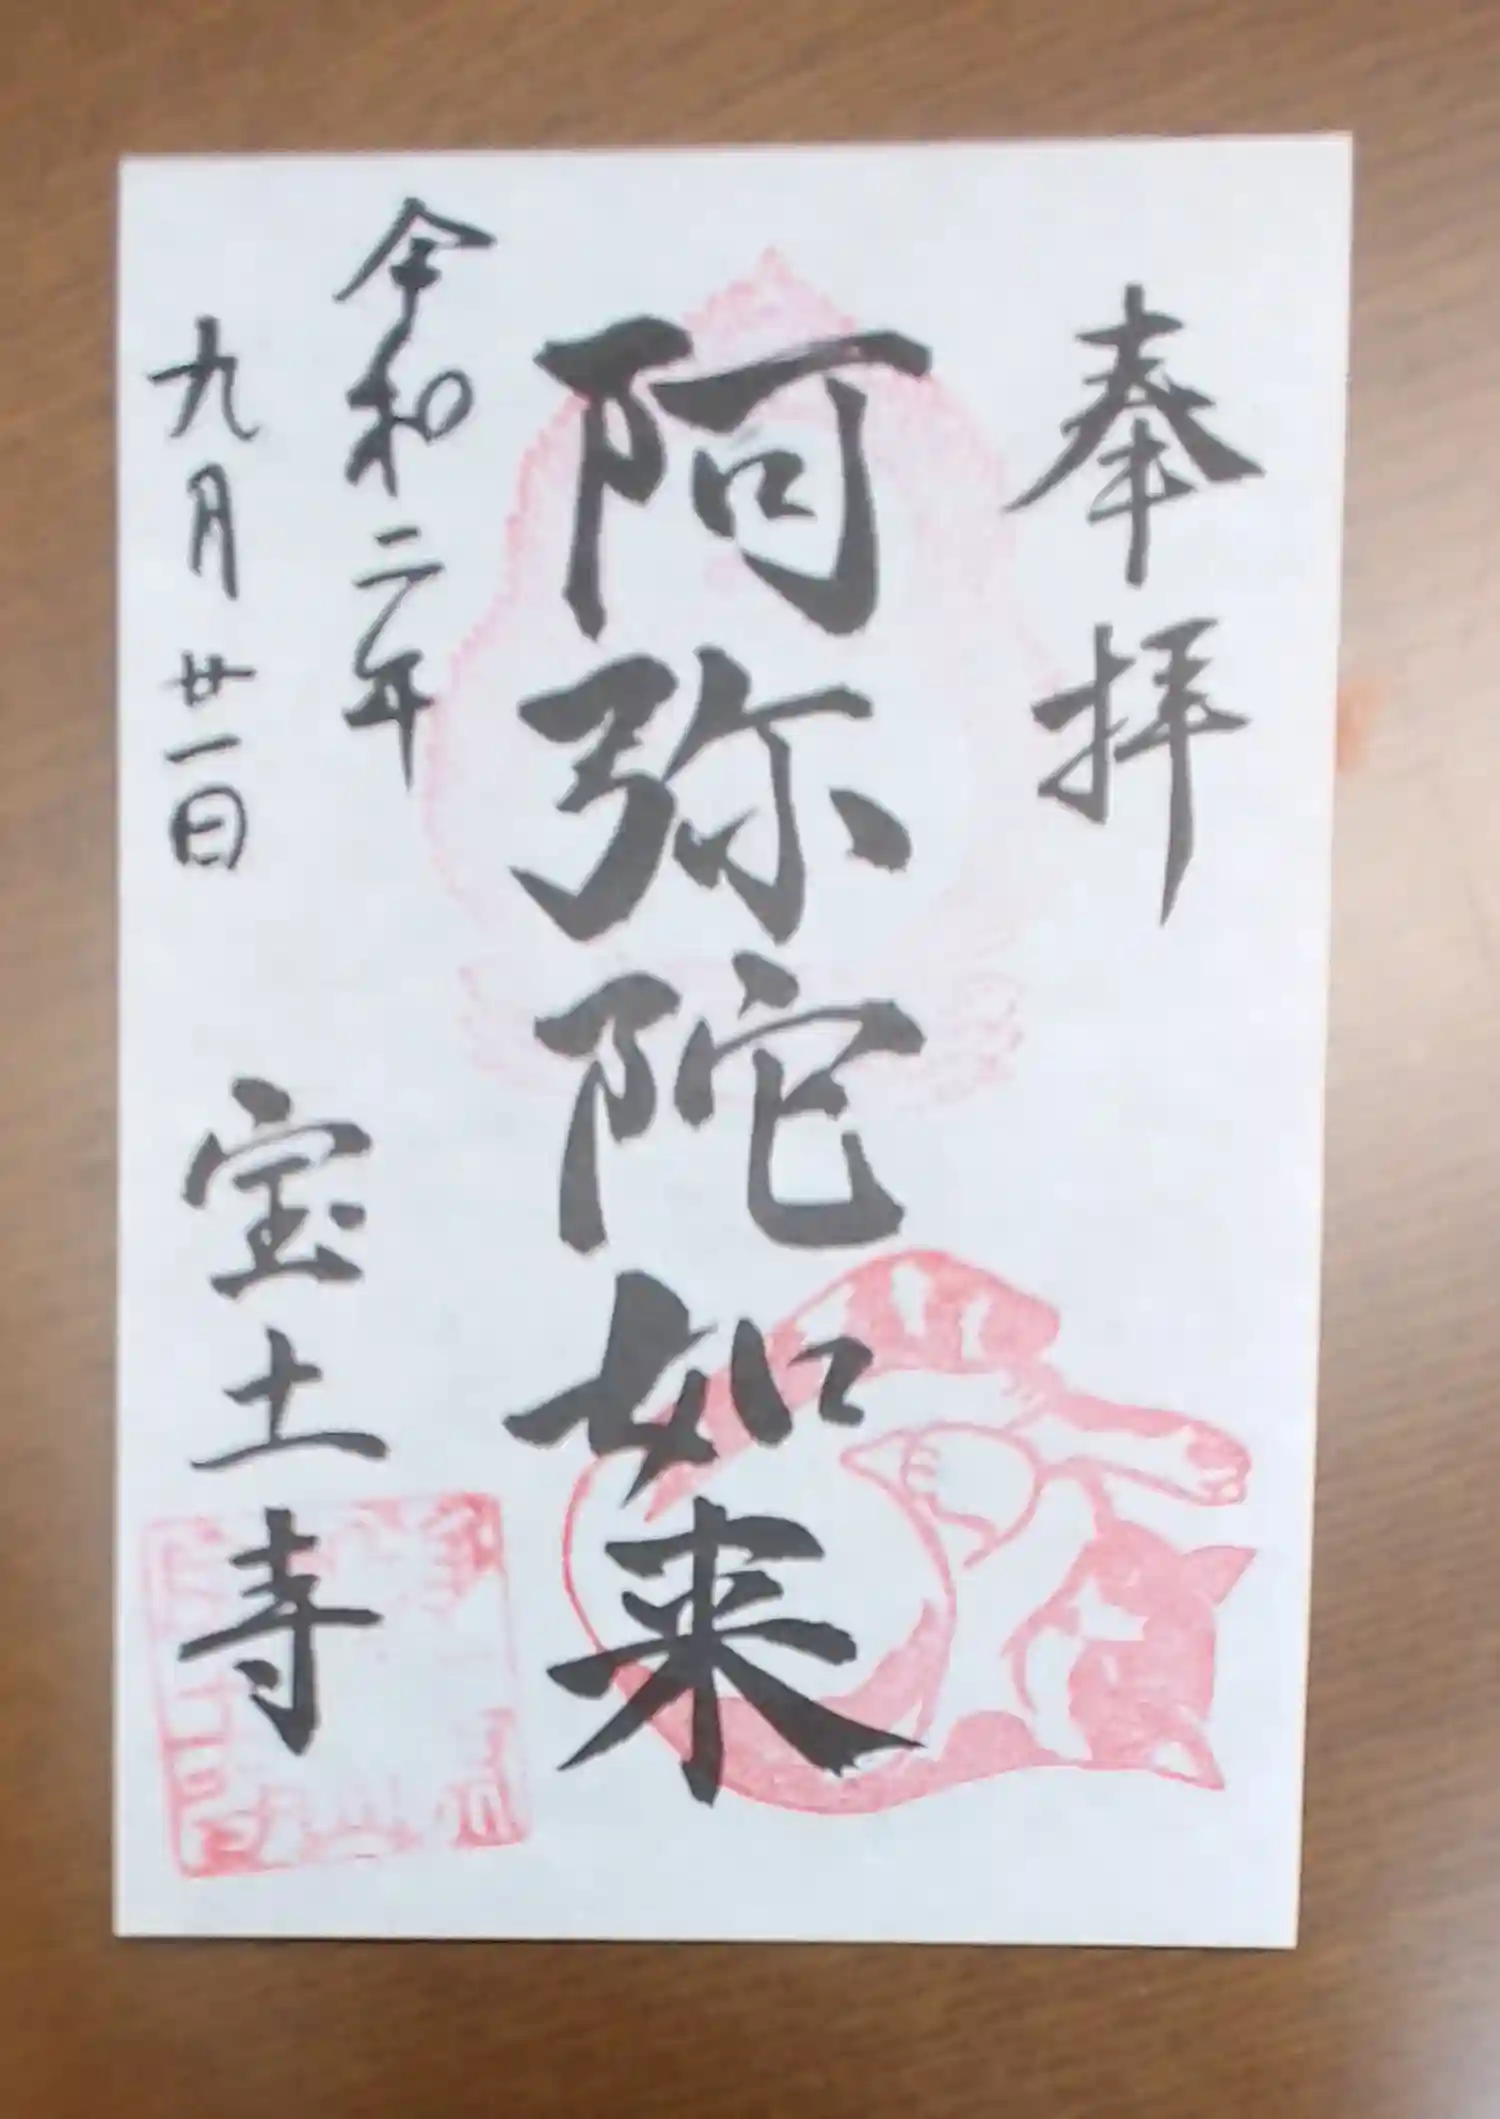 奉拝
阿弥陀如来
令和二年
九月廿一日
宝土寺